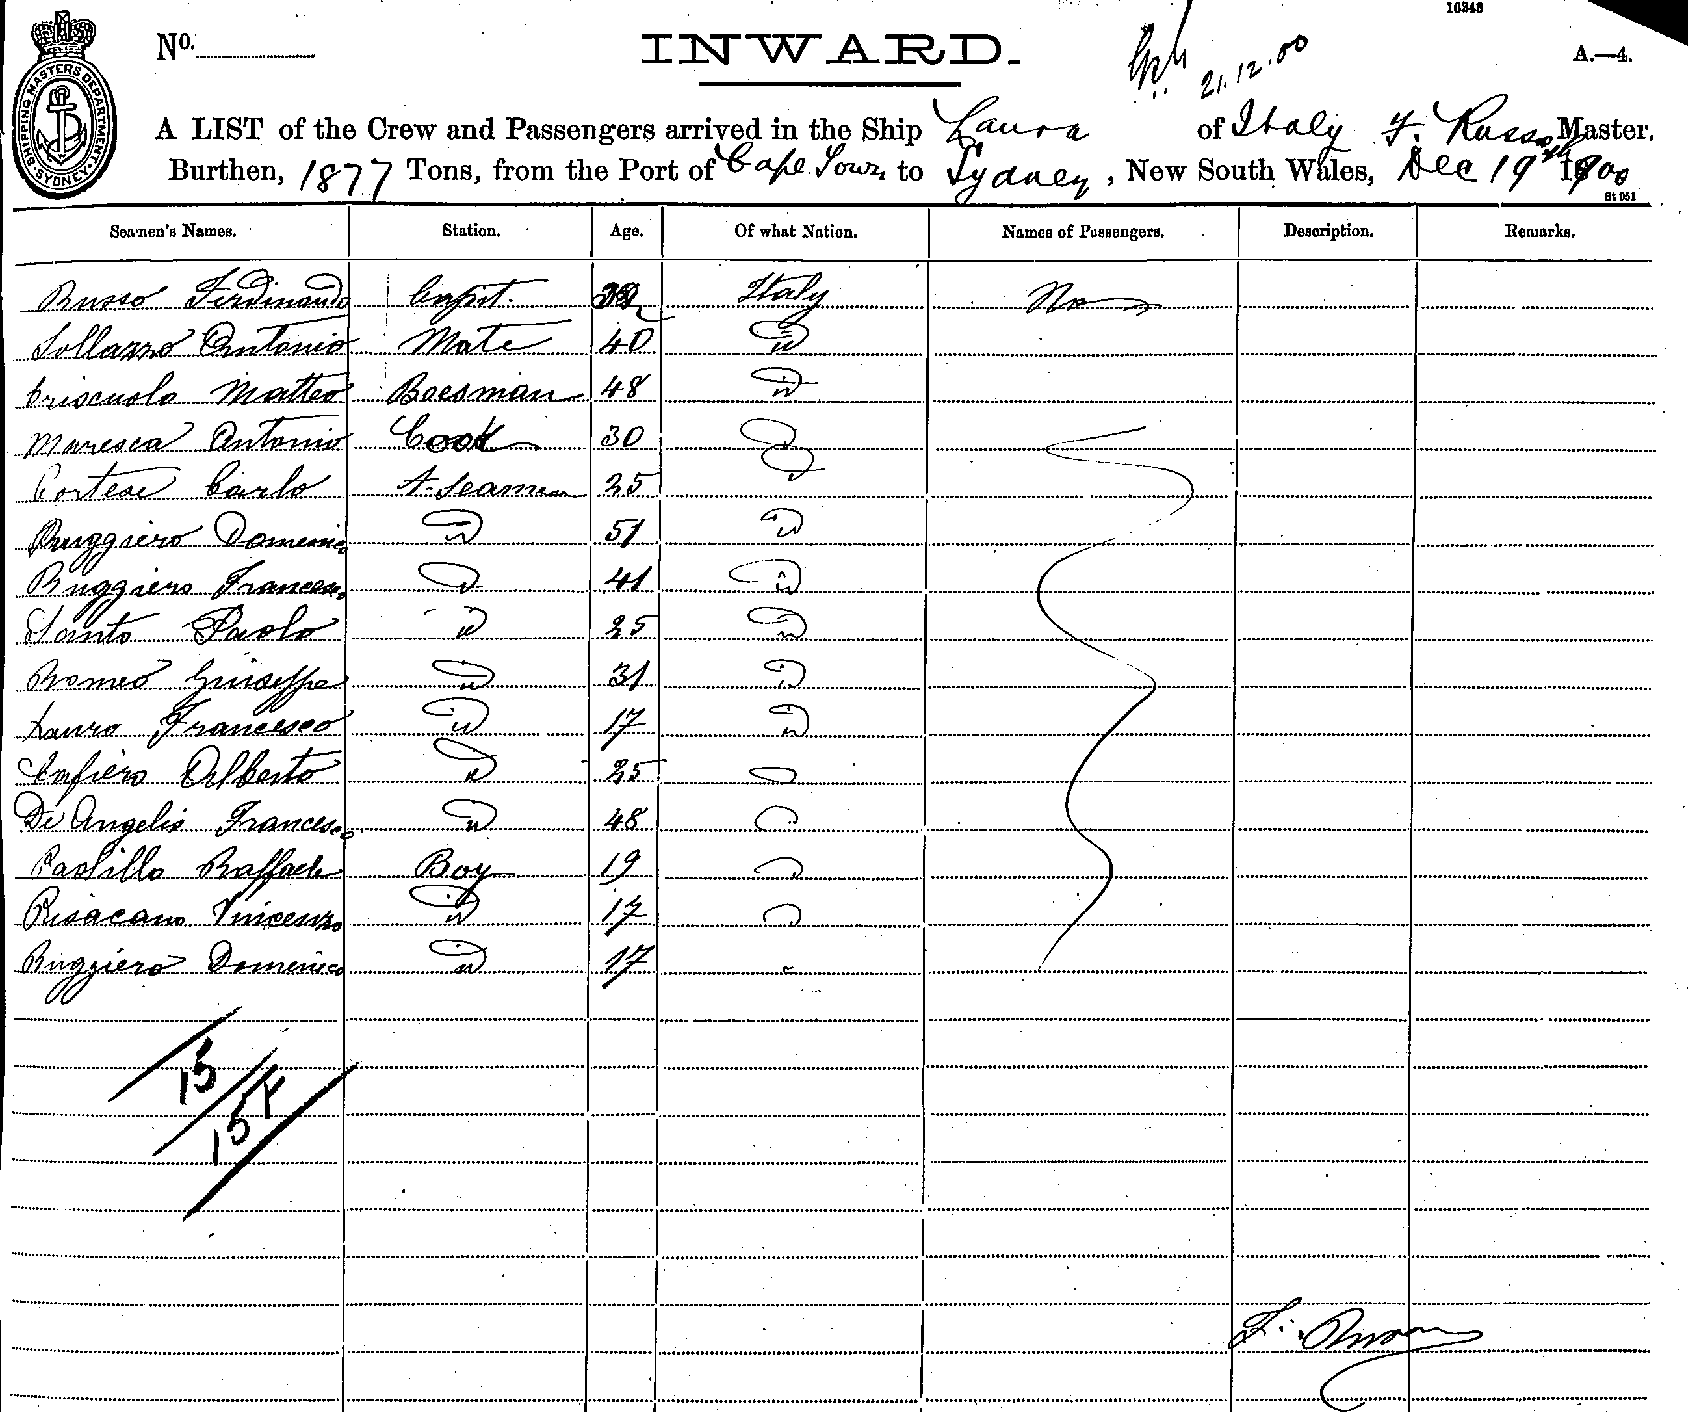 10348
No.
INWARD.
21.12.00
A.—4.
SHIPPING MASTERS DEPARTMENT SYDNEY
A LIST of the Crew and Passengers arrived in the Ship Laura of Italy F. Russo Master.
Burthen, 1877 Tons, from the Port of Cape Town to Sydney, New South Wales, Dec 19th 1900
Seamen's Names. Station. Age. Of what Nation. Names of Passengers. Description. Remarks.
Russo Ferdinando Capt. Italy No
Sollazzo Antonio Mate 40 D
Criscuolo Matteo Boesman 48 D
Maresca Antonio Cook 30 D
Cortese Carlo A. Seaman 25 D
Ruggiero Domenico D 51 D
Ruggiero Francesco D 41 D
Santo Paolo D 25 D
Romeo Giuseppe D 31 D
Lauro Francesco D 17 D
Cafiero Alberto D 25
De Angelis Francesco D 48
Paolillo Raffaele Boy 19
Risacano Vincenzo D 17
Ruggiero Domenico D 17
15
F. Russo